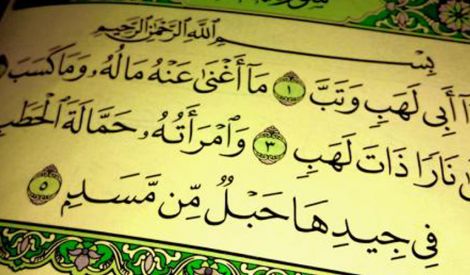 سورة
بِسْمِ ٱللَّهِ ٱلرَّحْمَٰنِ ٱلرَّحِيمِ
آ أَبِى لَهَبٍ وَتَبَّ ١ مَآ أَغْنَىٰ عَنْهُ مَالُهُۥ وَمَا كَسَبَ
نَارًا ذَاتَ لَهَبٍ ٣ وَٱمْرَأَتُهُۥ حَمَّالَةَ ٱلْحَطَبِ
فِى جِيدِهَا حَبْلٌ مِّن مَّسَدٍۭ ٥